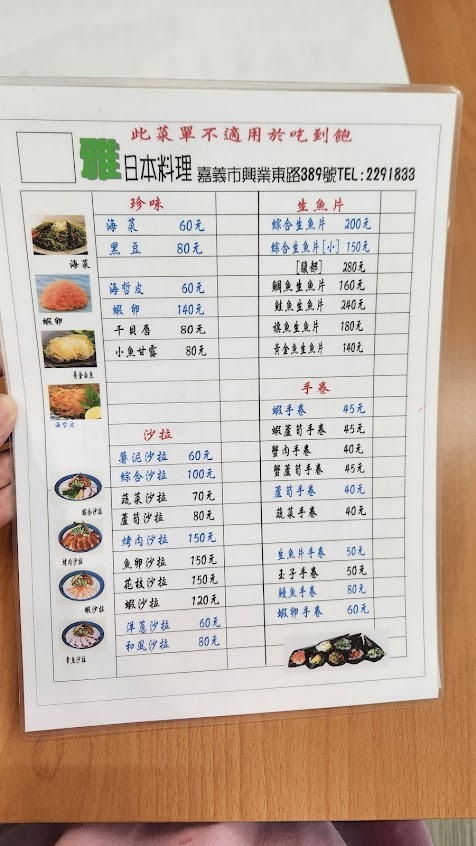 此菜單不適用於吃到飽
雅日本料理 嘉義市興業東路389號TEL:2291833
珍味
海菜 60元
黑豆 80元
海哲皮 60元
蝦卵 140元
干貝唇 80元
小魚甘露 80元
沙拉
薯泥沙拉 60元
綜合沙拉 100元
蔬菜沙拉 70元
蘆筍沙拉 80元
烤肉沙拉 150元
魚卵沙拉 150元
花枝沙拉 150元
蝦沙拉 120元
洋蔥沙拉 60元
和風沙拉 80元
生魚片
綜合生魚片 200元
綜合生魚片[小] 150元
280元
鯛魚生魚片 160元
鮭魚生魚片 240元
旗魚生魚片 180元
黃金魚生魚片 140元
手卷
蝦手卷 45元
蝦蘆筍手卷 45元
蟹肉手卷 40元
蟹蘆筍手卷 45元
蘆筍手卷 40元
蔬菜手卷 40元
生魚片手卷 50元
玉子手卷 50元
鰻魚手卷 80元
蝦卵手卷 60元
海菜
蝦卵
海哲皮
綜合沙拉
烤肉沙拉
蝦沙拉
章魚沙拉